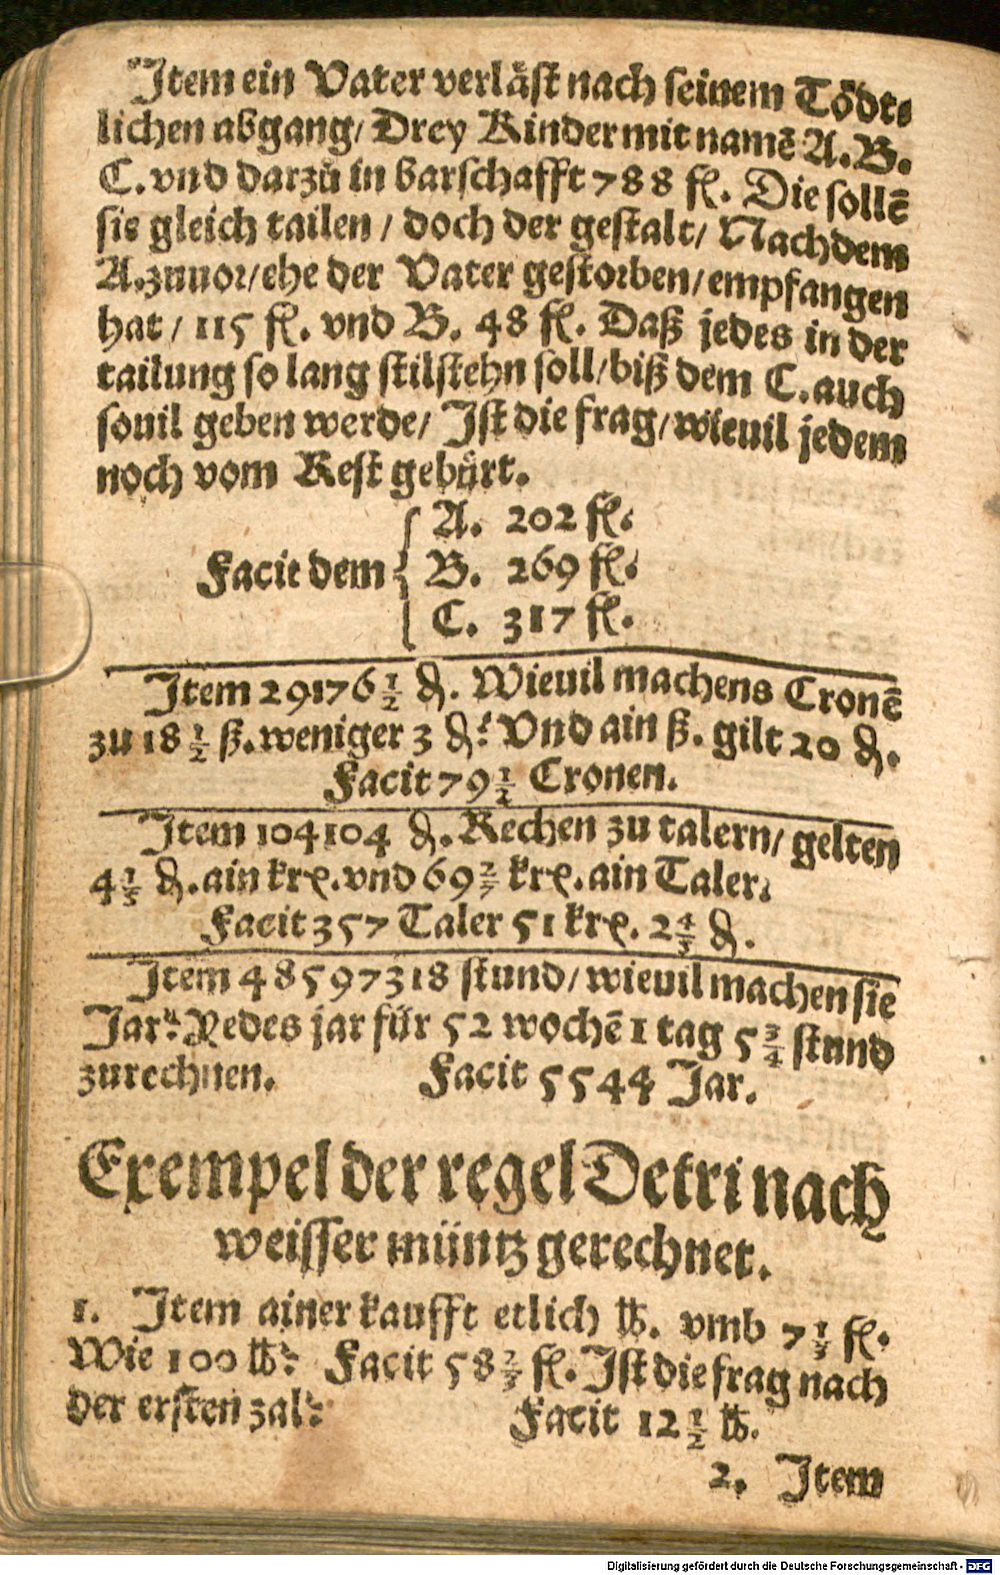 Item ein Vater verläſt nach ſeinem Tödt⸗
lichen abgang/ Drey Kinder mit namē A. B.
C. vnd darzů in barſchafft 788 fl. Die ſollē
ſie gleich tailen / doch der geſtalt/ Nachdem
A. zuuor/ ehe der Vater geſtorben/ empfangen
hat / 115 fl. vnd B. 48 fl. Daß jedes in der
tailung ſo lang ſtilſtehn ſoll/ biß dem C. auch
ſouil geben werde/ Iſt die frag/ wieuil jedem
noch vom Reſt gebürt.
A. 202 fl.
Facit dem B. 269 fl.
C. 317 fl.
Item 29176 1/2 ₰. Wieuil machens Cronē
zu 18 1/2 ß. weniger 3 ₰? Vnd ain ß. gilt 20 ₰.
Facit 79 1/2 Cronen.
Item 104104 ₰. Rechen zu talern/ gelten
4 1/5 ₰. ain krꝭ. vnd 69 2/7 krꝭ. ain Taler.
Facit 357 Taler 51 krꝭ. 2 4/5 ₰.
Item 48597318 ſtund/ wieuil machen ſie
Jar? Yedes jar für 52 wochē 1 tag 5 3/4 ſtund
zurechnen. Facit 5544 Jar.
Exempel der regel Detri nach
weiſſer müntz gerechnet.
1. Item ainer kaufft etlich ℔. vmb 7 1/3 fl.
Wie 100 ℔? Facit 58 2/3 fl. Iſt die frag nach
der erſten zal? Facit 12 1/2 ℔.
2. Item
Digitalisierung gefördert durch die Deutsche Forschungsgemeinschaft - DFG